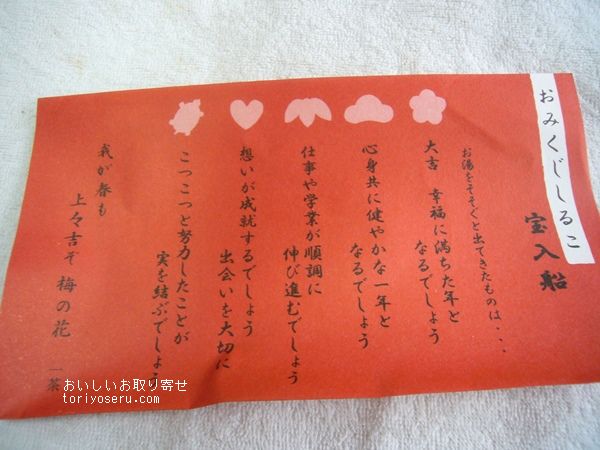 おみくじしるこ
宝入船
お湯をそそぐと出てきたものは・・・
大吉 幸福に満ちた年と
なるでしょう
心身共に健やかな一年と
なるでしょう
仕事や学業が順調に
伸び進むでしょう
想いが成就するでしょう
出会いを大切に
こつこつと努力したことが
実を結ぶでしょう
我が春も
上々吉ぞ 梅の花
一茶
おいしいお取り寄せ
toriyoseru.com